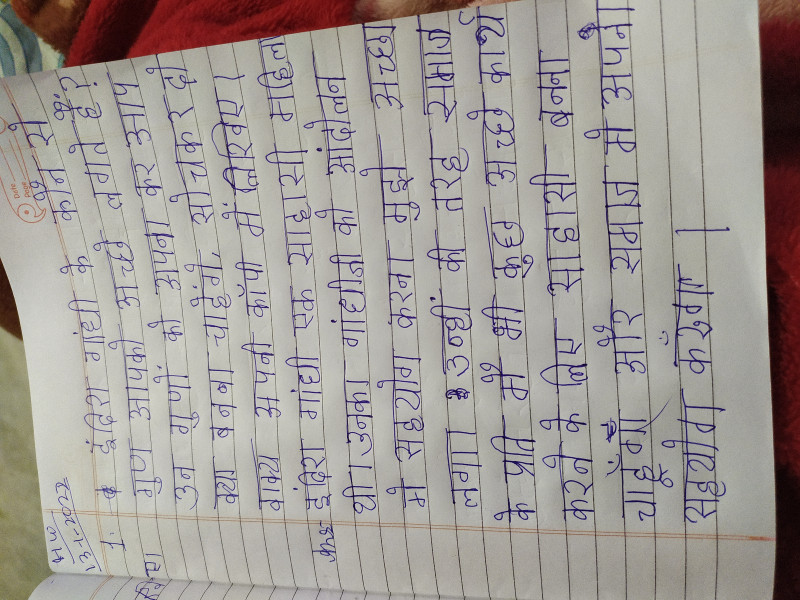 Date
Page
H.W
13-1-2022
1. इंदिरा गांधी के कौन से
गुण आपको अच्छे लगते हैं?
उन गुणों को अपना कर आप
क्या बनना चाहेंगे, सोचकर दो
वाक्य अपनी कॉपी में लिखिए।
इंदिरा गांधी एक साहासी महिला
थी। उनका गांधीजी को आंदोलन
में सहयोग करना मुझे अच्छा
लगा। उन्हीं की तरह समाज
के प्रति मैं भी कुछ अच्छे कार्य
करने के लिए साहासी बनना
चाहूँगा और समाज में अपना
सहयोग करूँगा।